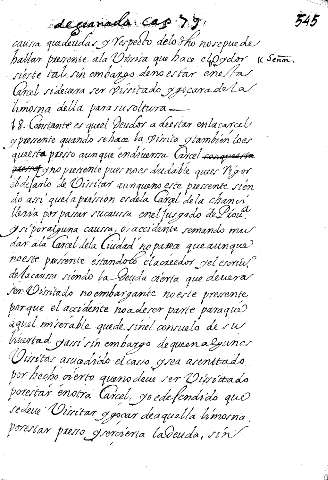 de granada. Cap 77. 545
causa que deudas, y respecto de lo tho no se puede
hallar presente a la Visita que hace el Oydor
si este tal, sin embargo de no estar en esta
Carcel si devera ser Visitado, y goçara de las
limosna della para su soltura
18. Constante es que el Deudor a de estar en la carcel
y presente quando se hace la Visita y tambien lo es
que esta presso aunque en diversa Carcel
y no presente pues no es dudable que es Rigor
el dejarlo de Visitar aunque no este presente sien
do assi que la prission es de la Carcel de la chanci
lleria por passar su causa en el juzgado de
y si por alguna causa, o accidente se mando mu
dar a la Carcel de la Ciudad no parece que aunque
no este presente estandolo el acreedor y el escrivº
de la causa siendo la Deuda cierta que devera
ser Visitado no embargante no este presente
porque el accidente no a de ser parte para que
aquel miserable quede sin el consuelo de su
libertad y assi sin embargo de que en algunas
Visitas a sucedido el caso y sea assentado
por hecho cierto que no deve ser Vissitado
por estar en otra Carcel, yo e defendido que
se deve Visitar, y goçar de aquella limosna,
por estar presso y ser cierta la deuda, sin